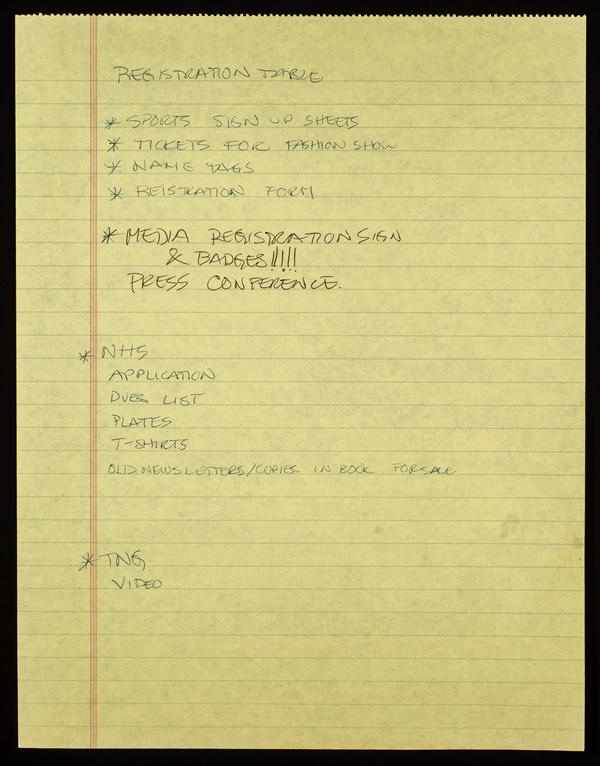 REGISTRATION TABLE
* SPORTS SIGN UP SHEETS
* TICKETS FOR FASHION SHOW
* NAME TAGS
* REISTRATION FORM
* MEDIA REGISTRATION SIGN
& BADGES!!!!!
PRESS CONFERENCE.
* NHS
APPLICATION
DUES LIST
PLATES
T-SHIRTS
OLD NEWSLETTERS/COPIES IN BOOK FOR SALE
* TNG
VIDEO